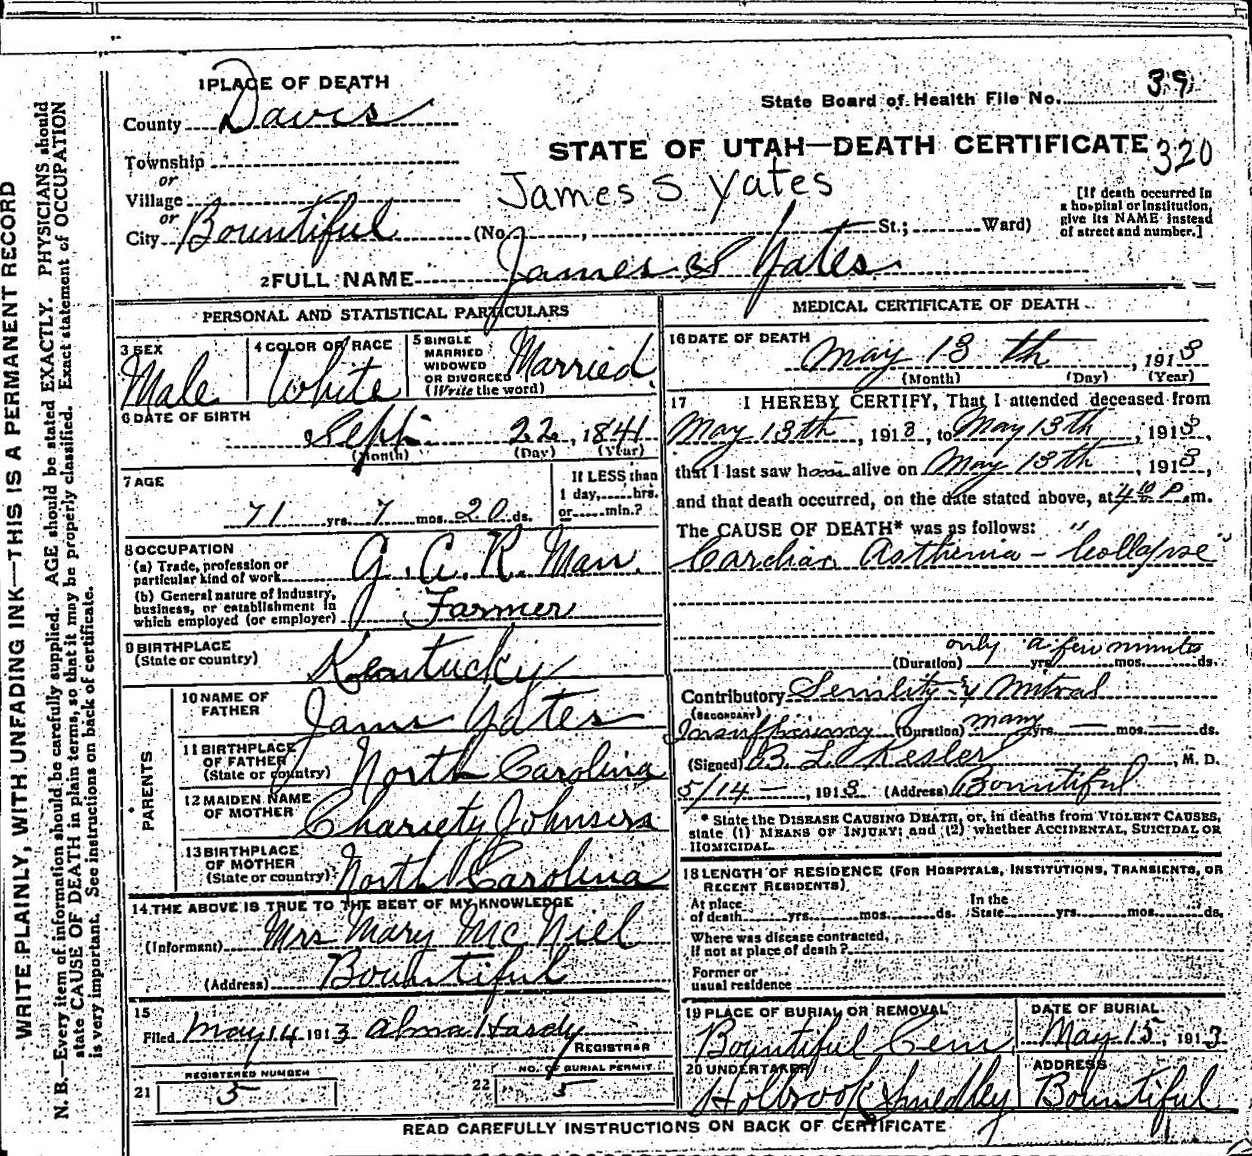 1 PLACE OF DEATH
County Davis
State Board of Health File No. 39
STATE OF UTAH—DEATH CERTIFICATE 320
Township
or
Village
or
City Bountiful (No. , St.; Ward)
James S Yates
[If death occurred in
a hospital or institution,
give its NAME instead
of street and number.]
2 FULL NAME James S Yates
PERSONAL AND STATISTICAL PARTICULARS
3 SEX
Male
4 COLOR OR RACE
White
5 SINGLE
MARRIED
WIDOWED
OR DIVORCED
(Write the word)
Married
6 DATE OF BIRTH
Sept. 22, 1841
(Month) (Day) (Year)
7 AGE
71 yrs. 7 mos. 20 ds.
If LESS than
1 day, hrs.
or min.?
8 OCCUPATION
(a) Trade, profession or
particular kind of work G. A. R. Man.
(b) General nature of Industry,
business, or establishment in
which employed (or employer) Farmer
9 BIRTHPLACE
(State or country) Kentucky
PARENTS
10 NAME OF
FATHER James Yates
11 BIRTHPLACE
OF FATHER
(State or country) North Carolina
12 MAIDEN NAME
OF MOTHER Chariety Johnson
13 BIRTHPLACE
OF MOTHER
(State or country) North Carolina
14 THE ABOVE IS TRUE TO THE BEST OF MY KNOWLEDGE
(Informant) Mrs Mary McNiel
(Address) Bountiful
15
Filed May 14 1913 Alma Hardy
REGISTRAR
21 REGISTERED NUMBER
5
22 NO. OF BURIAL PERMIT
5
MEDICAL CERTIFICATE OF DEATH
16 DATE OF DEATH
May 13 th, 1913
(Month) (Day) (Year)
17 I HEREBY CERTIFY, That I attended deceased from
May 13th, 1913, to May 13th, 1913,
that I last saw him alive on May 13th, 1913,
and that death occurred, on the date stated above, at 4 10 P. m.
The CAUSE OF DEATH* was as follows:
Cardiac Asthenia - "Collapse"
only a few minutes
(Duration) yrs. mos. ds.
Contributory Senility & Mitral
(SECONDARY)
Insufficiency (Duration) many yrs. — mos. — ds.
(Signed) B. L. Kesler, M. D.
5/14 —, 1913 (Address) Bountiful
* State the DISEASE CAUSING DEATH, or, in deaths from VIOLENT CAUSES,
state (1) MEANS OF INJURY; and (2) whether ACCIDENTAL, SUICIDAL OR
HOMICIDAL.
18 LENGTH OF RESIDENCE (FOR HOSPITALS, INSTITUTIONS, TRANSIENTS, OR
RECENT RESIDENTS)
At place
of death yrs. mos. ds.
In the
State yrs. mos. ds.
Where was disease contracted,
if not at place of death?
Former or
usual residence
19 PLACE OF BURIAL OR REMOVAL
Bountiful Cem
DATE OF BURIAL
May 15, 1913
20 UNDERTAKER
Holbrook Smedley
ADDRESS
Bountiful
READ CAREFULLY INSTRUCTIONS ON BACK OF CERTIFICATE
WRITE PLAINLY, WITH UNFADING INK—THIS IS A PERMANENT RECORD
N. B.—Every item of information should be carefully supplied. AGE should be stated EXACTLY. PHYSICIANS should
state CAUSE OF DEATH in plain terms, so that it may be properly classified. Exact statement of OCCUPATION
is very important. See instructions on back of certificate.